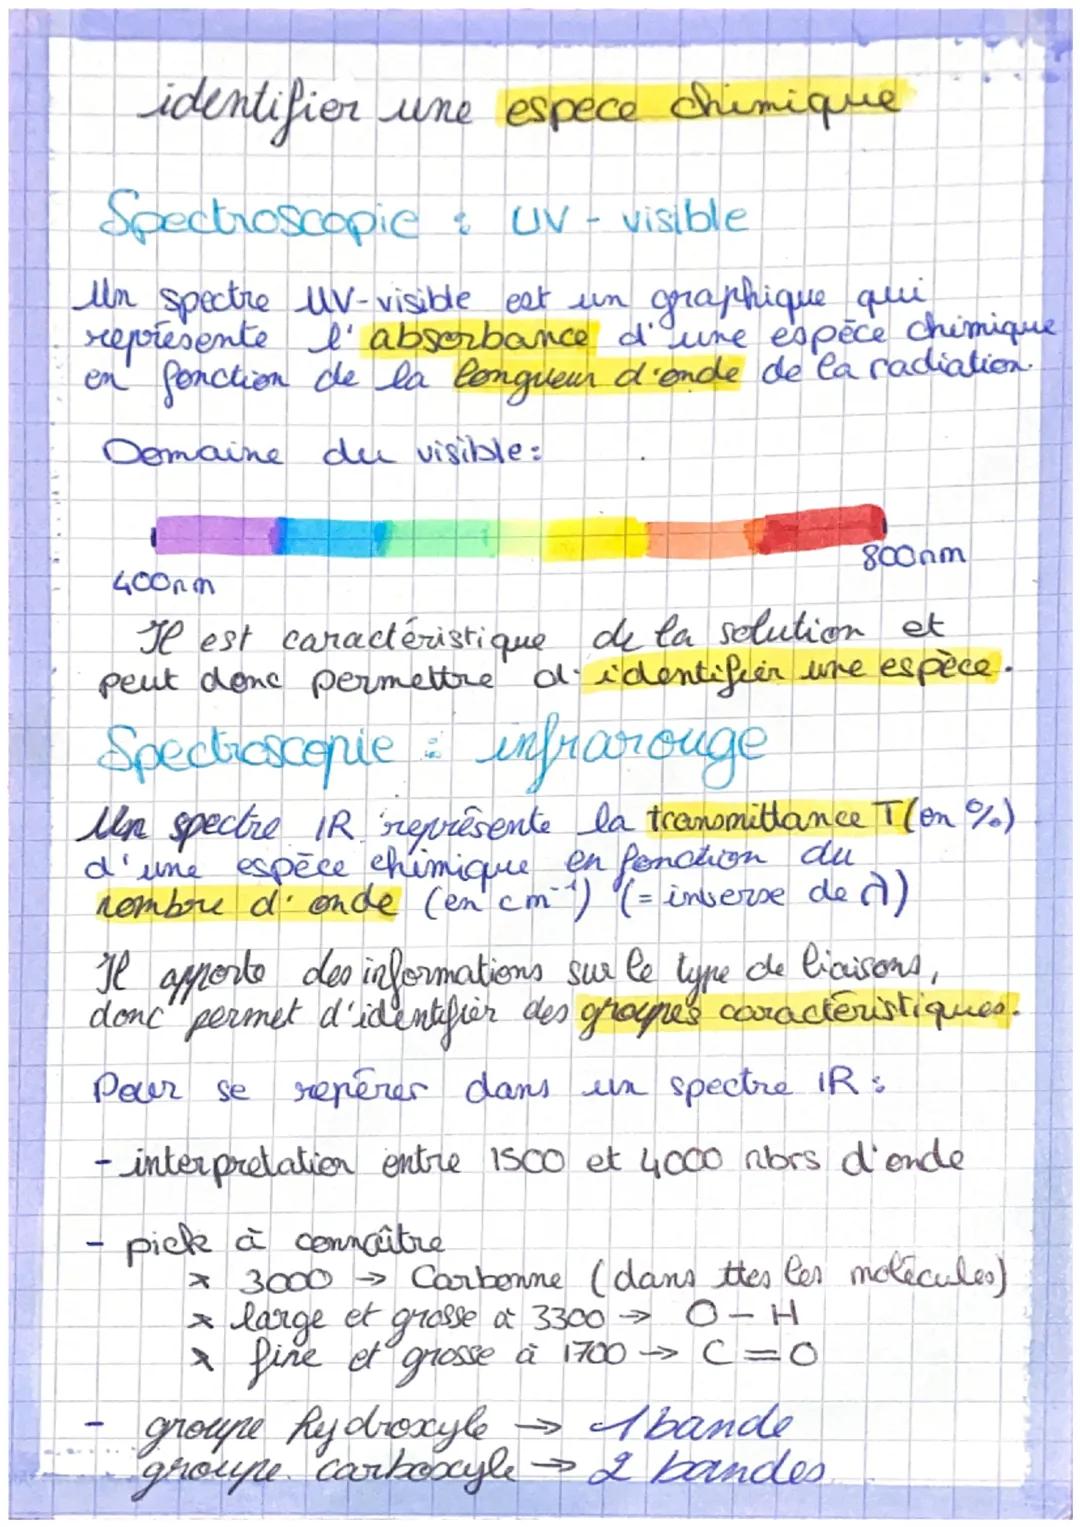 identifier une espece chimique
Spectroscopie : UV - visible
Un spectre UV-visible est un graphique qui
représente l'absorbance d'une espèce chimique
en fonction de la longueur d'onde de la radiation.
Domaine du visible :
800nm
400nm
Il est caractéristique de la solution et
peut donc permettre d'identifier une espèce.
Spectroscopie : infrarouge
Un spectre IR représente la transmittance T(en %)
d'une espèce chimique en fonction du
nombre d'onde (en cm⁻¹) (= inverse de λ)
Il apporte des informations sur le type de liaisons,
donc permet d'identifier des groupes caractéristiques.
Pour se repérer dans un spectre IR :
- interpretation entre 1500 et 4000 nbrs d'onde
- pick à connaître
x 3000 → Carbonne (dans ttes les molécules)
x large et grosse à 3300 → O-H
x fine et grosse à 1700 → C=O
- groupe hydroxyle → 1 bande
groupe carboxyle → 2 bandes